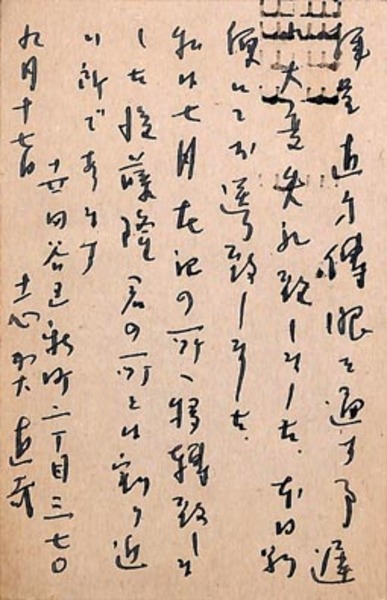 拝呈 直 傳 眼を通す事 遅
れ大変失礼致しました。本日別
便にてお送り致しました。
私は七月左記の所へ移轉致しま
した 後藤隆 君の所とは割り近
い所であります
世田谷区新町二丁目三七〇
九月十七日 志賀直哉